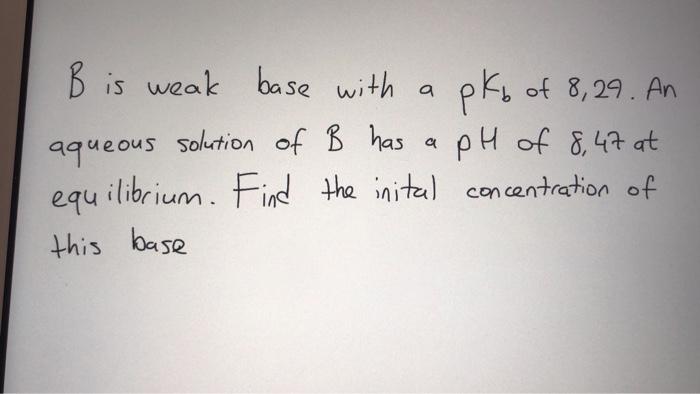 B is weak base with a pKb of 8,29. An
aqueous solution of B has a pH of 8,47 at
equilibrium. Find the inital concentration of
this base